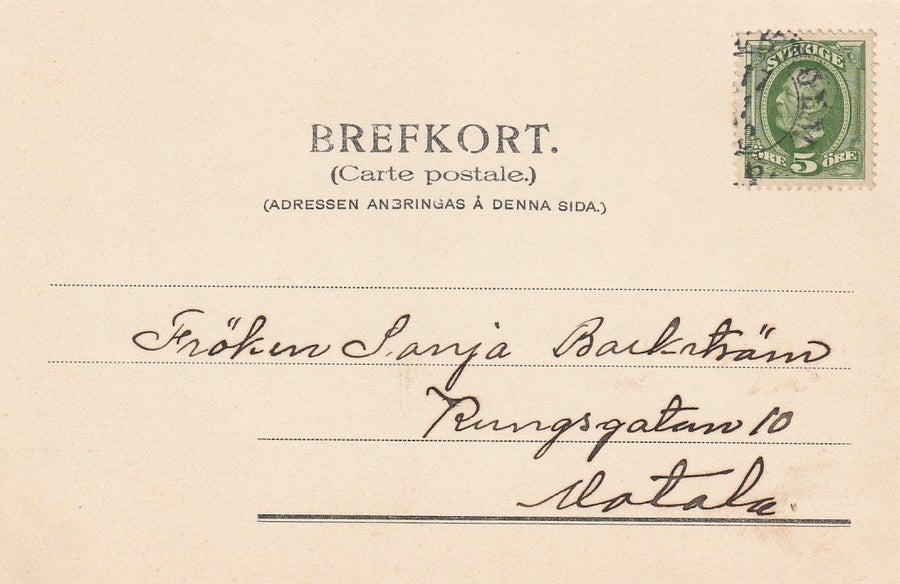 SVERIGE
ÖRE 5 ÖRE
BREFKORT.
(Carte postale.)
(ADRESSEN ANBRINGAS Å DENNA SIDA.)
Fröken Sonja Backström
Kungsgatan 10
Motala.